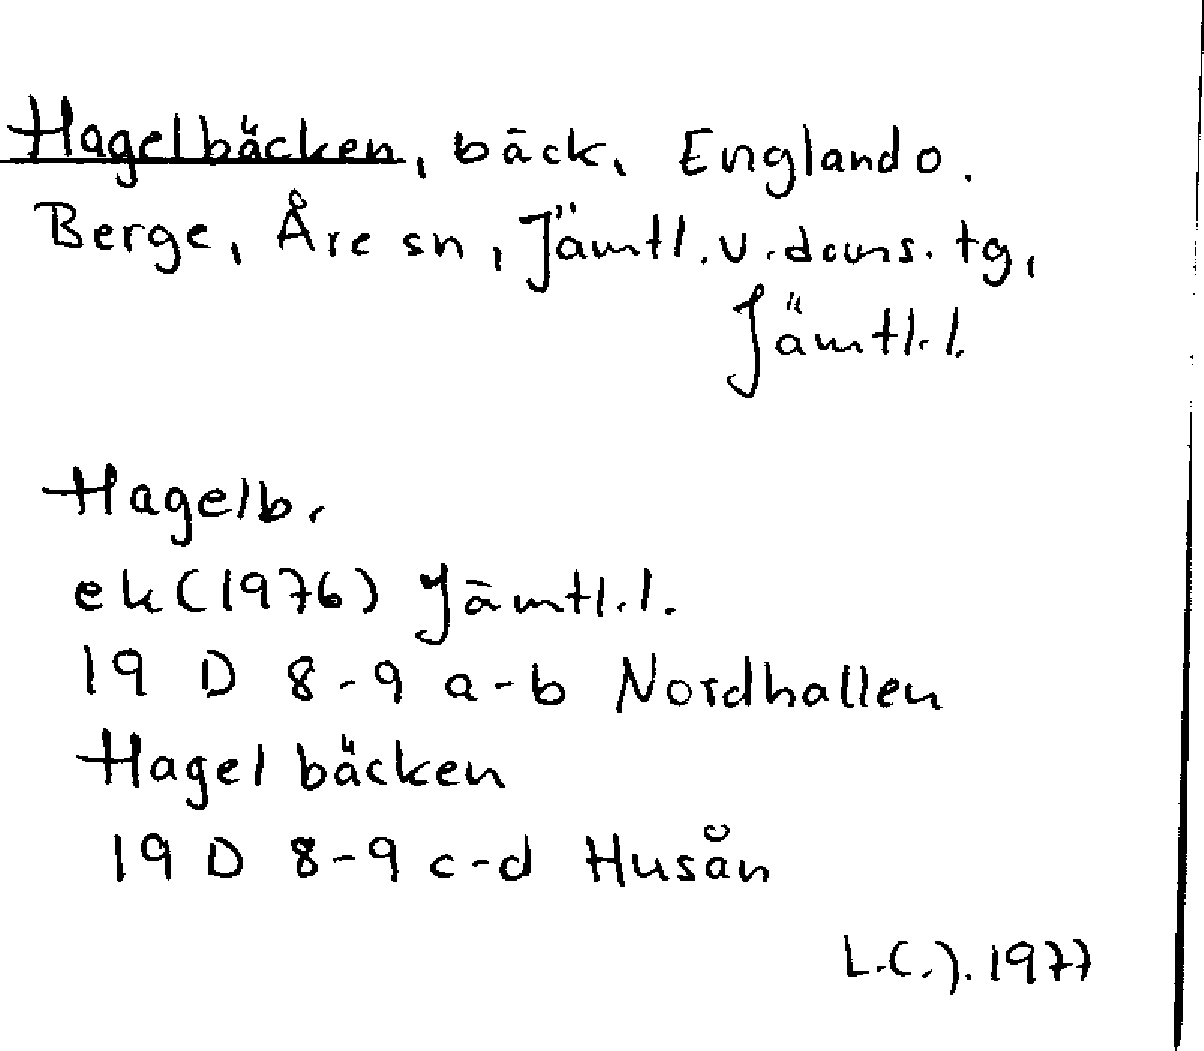 Hagelbäcken, bäck, England o.
Berge, Åre sn, Jämtl. v. doms. tg,
Jämtl. l.
Hagelb.
ek (1976) Jämtl. l.
19 D 8-9 a-b Nordhallen
Hagelbäcken
19 D 8-9 c-d Husån
L.C.J. 1977